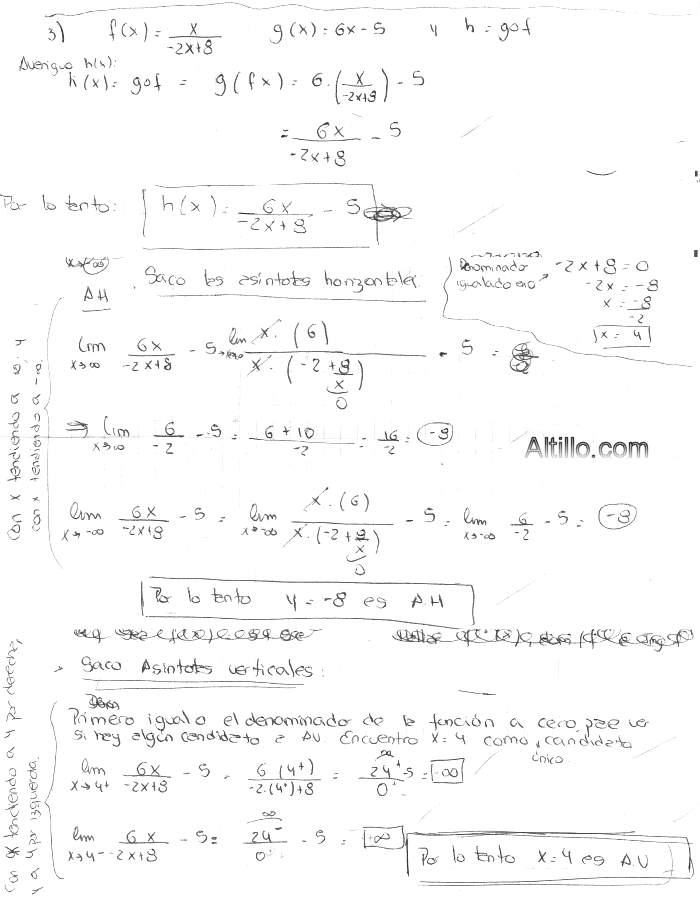 3) f(x) = x / -2x+8   g(x) = 6x - 5   y   h = gof
Averiguo h(x):
h(x) = gof = g(fx) = 6.(x / -2x+8) - 5
= 6x / -2x+8 - 5
Por lo tanto: h(x) = 6x / -2x+8 - 5
Saco las asintotas horizontales
AH
Denominador igualado a 0
-2x+8 = 0
-2x = -8
x = -8 / -2
x = 4
Con x tendiendo a ∞, y
con x tendiendo a -∞.
lim x→∞ 6x / -2x+8 - 5 = lim x→∞ x.(6) / x.(-2 + 8/x) - 5 =
0
⇒ lim x→∞ 6 / -2 - 5 = 6+10 / -2 = 16 / -2 = -8
Altillo.com
lim x→-∞ 6x / -2x+8 - 5 = lim x→-∞ x.(6) / x.(-2 + 8/x) - 5 = lim x→-∞ 6 / -2 - 5 = -8
0
Por lo tanto y = -8 es A.H
Saco Asintotas verticales:
Primero igualo el denominador de la función a cero, para ver
si hay algún candidato a AV. Encuentro x=4 como candidato
único.
Con x tendiendo a 4 por derecha,
y a 4 por izquierda.
lim x→4+ 6x / -2x+8 - 5 = 6(4+) / -2.(4+)+8 = 24+ / 0+ - 5 = -∞
∞
lim x→4- 6x / -2x+8 - 5 = 24- / 0 - 5 = +∞
∞
Por lo tanto x=4 es A.V